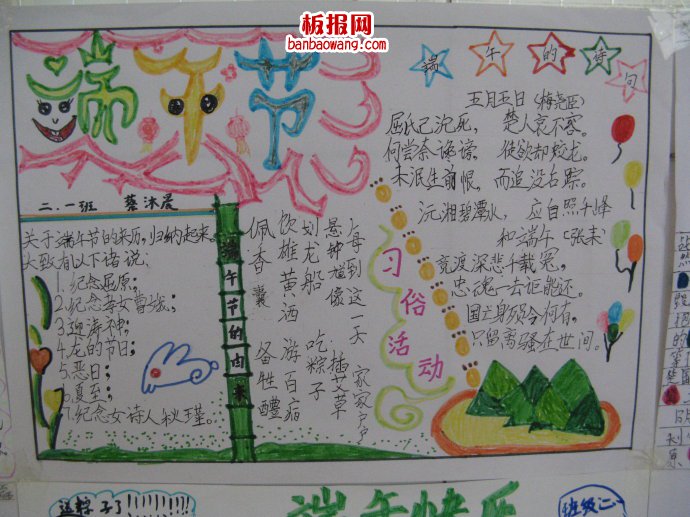 板报网
banbaowang.com
端午节
二.一班 蔡沐晨
关于端午节的来历,归纳起来,
大致有以下诸说:
1.纪念屈原;
2.纪念孝女曹娥;
3.迎涛神;
4.龙的节日;
5.恶日;
6.夏至;
7.纪念女诗人秋瑾。
端午节的由来
每到这一天 家家户户
悬钟馗像 插艾草
划龙船 吃粽子
饮雄黄酒 游百病
佩香囊 备牲醴
习俗活动
端午的诗句
五月五日(梅尧臣)
屈氏已沉死, 楚人哀不容。
何尝奈谗谤, 徒欲却蛟龙。
未泯生前恨, 而追没后踪。
沅湘碧潭水, 应自照千峰
和端午 (张耒)
竞渡深悲千载冤,
忠魂一去讵能还。
国亡身殒今何有,
只留离骚在世间。
送粽子了!!!!!!!!
端午快乐